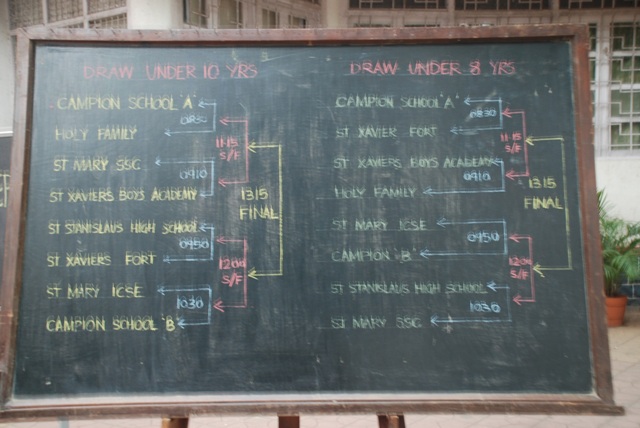 DRAW UNDER 10 YRS
CAMPION SCHOOL 'A'
0830
HOLY FAMILY
11.15
S/F
ST MARY SSC
0910
ST XAVIERS BOYS ACADEMY
1315
FINAL
ST STANISLAUS HIGH SCHOOL
0950
ST XAVIERS FORT
1200
S/F
ST MARY ICSE
1030
CAMPION SCHOOL 'B'
DRAW UNDER 8 YRS
CAMPION SCHOOL 'A'
0830
ST XAVIER FORT
11.15
S/F
ST XAVIERS BOYS ACADEMY
0910
HOLY FAMILY
1315
FINAL
ST MARY ICSE
0950
CAMPION 'B'
1200
S/F
ST STANISLAUS HIGH SCHOOL
1030
ST MARY SSC